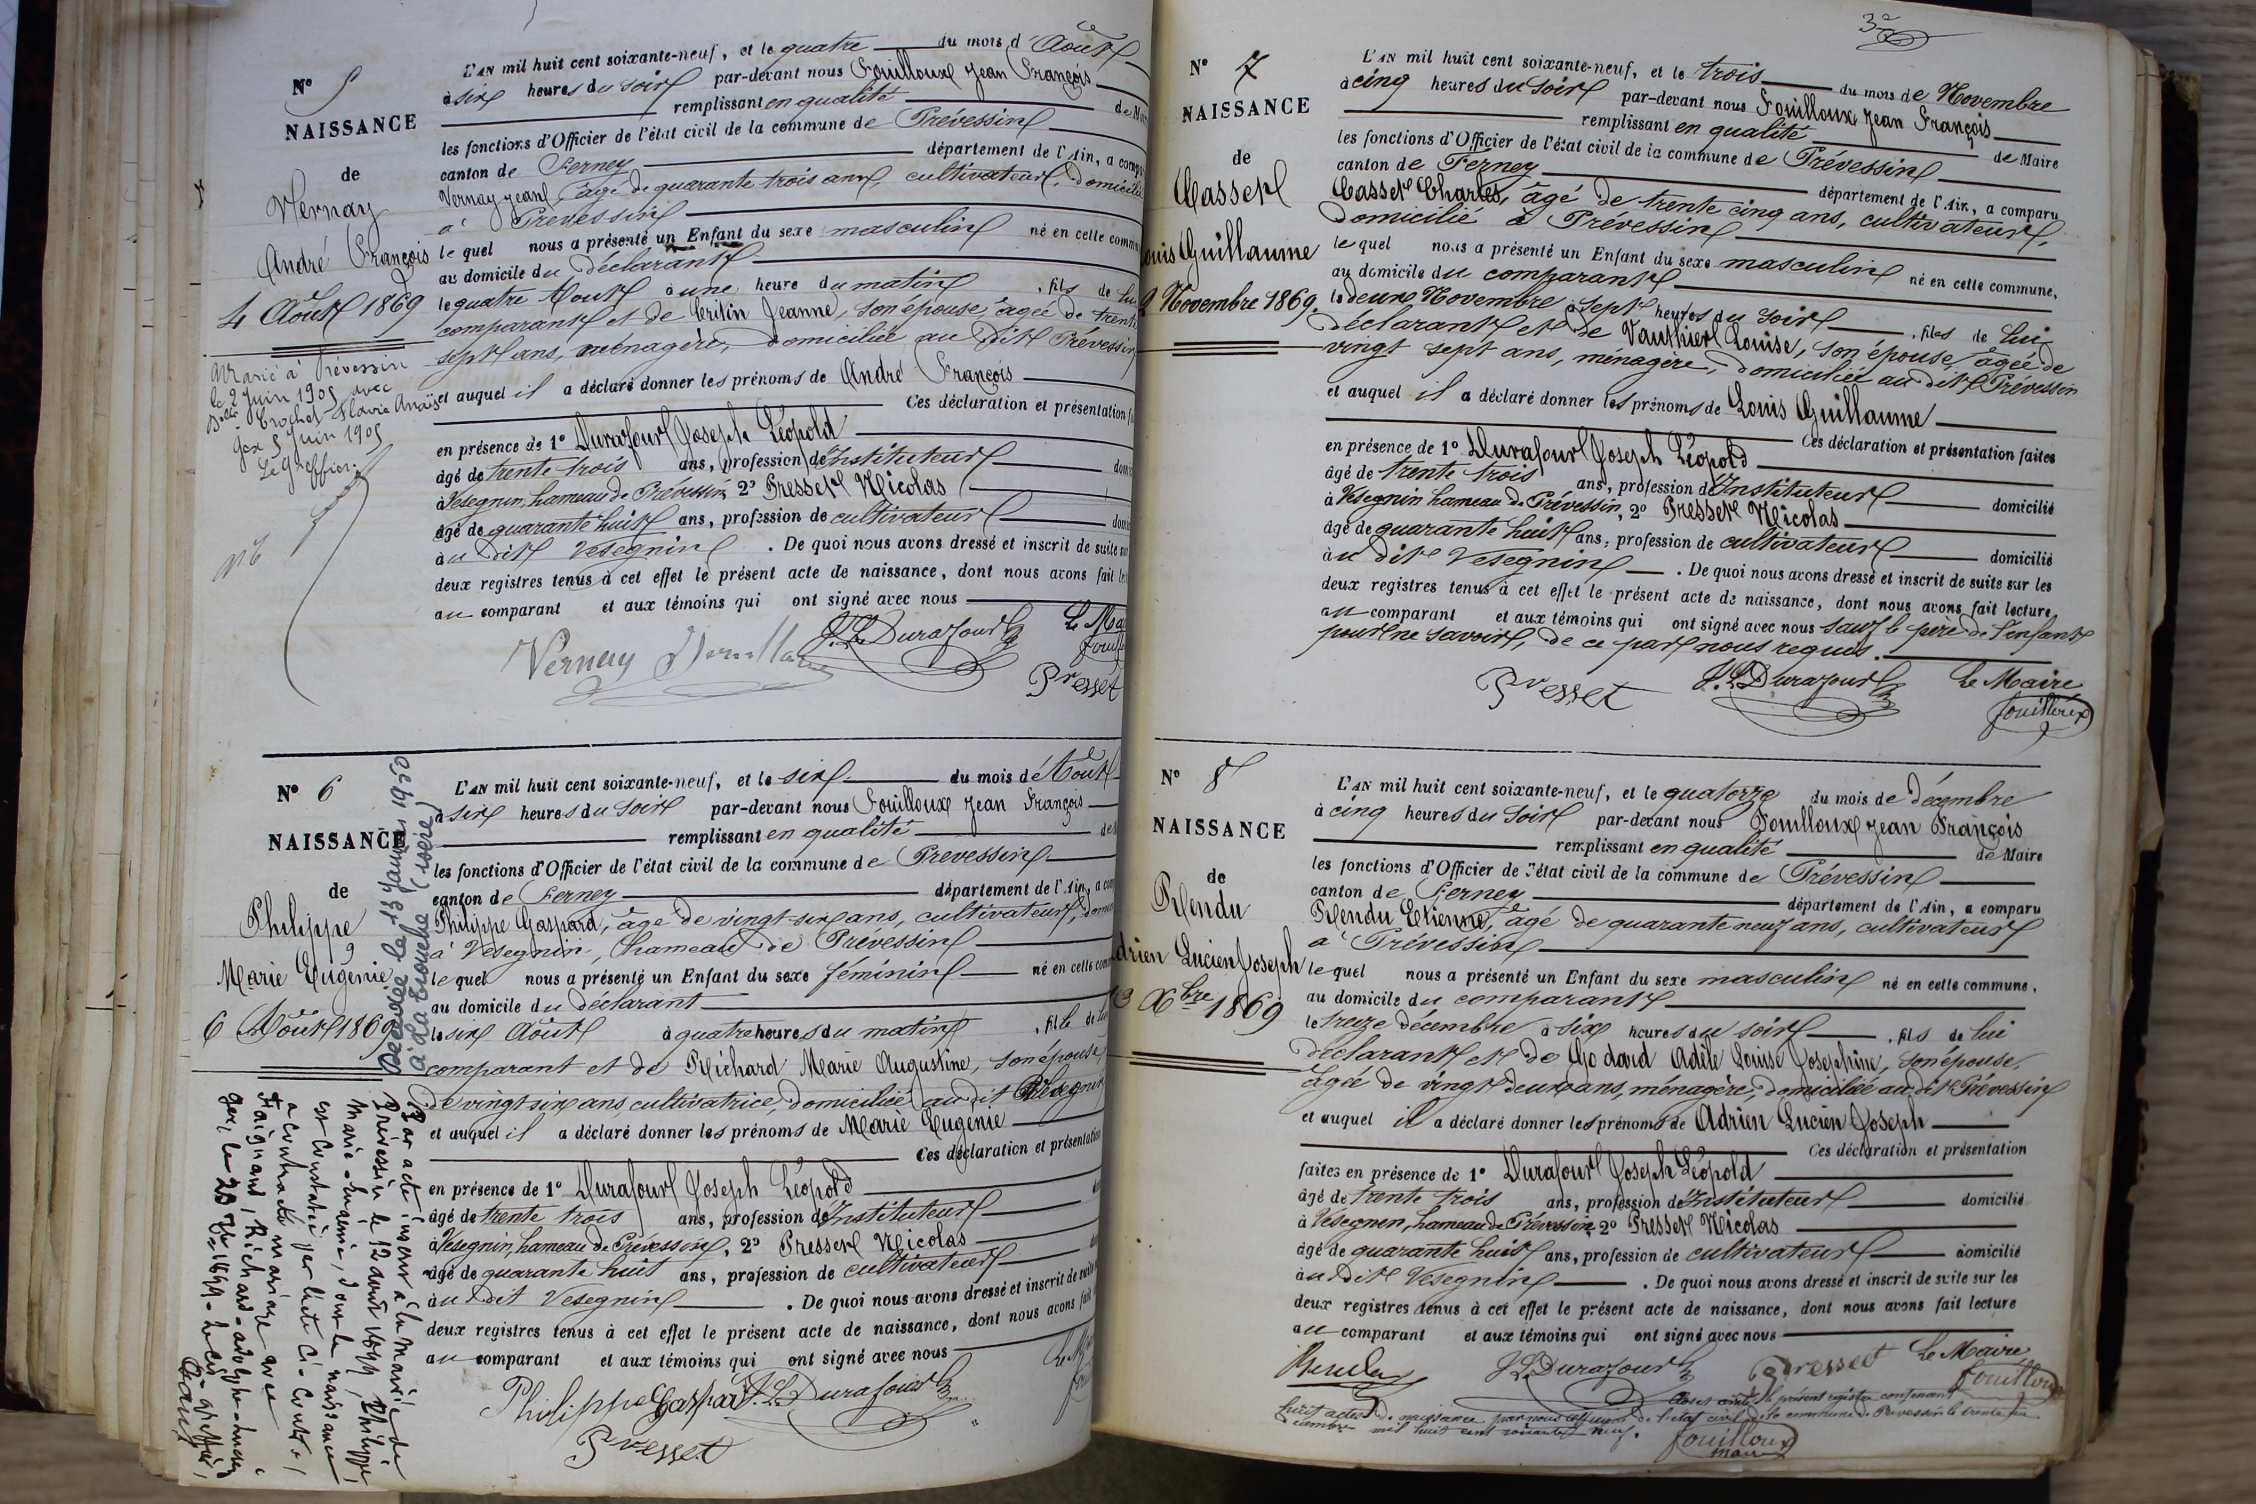 N° 5
NAISSANCE
de
Vernay
André François
4 Août 1869
Marié à Prévessin
le 2 Juin 1905 avec
Delle Crochet Flavie Anaïs
Gex 5 Juin 1905
Le Greffier
L'AN mil huit cent soixante-neuf, et le quatre du mois d'Août
à six heures du soir par-devant nous Fouilloux Jean François
remplissant en qualité de
les fonctions d'Officier de l'état civil de la commune de Prévessin
canton de Ferney département de l'Ain, a
Vernay Jean, âgé de quarante trois ans, cultivateur, domicilié
à Prévessin
le quel nous a présenté un Enfant du sexe masculin né en cette
au domicile du déclarant
le quatre Août à une heure du matin, fils de lui
comparant et de Critin Jeanne, son épouse, âgée de trente
sept ans, ménagère, domiciliée au dit Prévessin
et auquel il a déclaré donner les prénoms de André François
Ces déclaration et présentation
en présence de 1° Durafour Joseph Léopold
âgé de trente trois ans, profession d'Instituteur
à Vesegnin, hameau de Prévessin, 2° Presset Nicolas
âgé de quarante huit ans, profession de cultivateur
au dit Vesegnin. De quoi nous avons dressé et inscrit de suite
deux registres tenus à cet effet le présent acte de naissance, dont nous avons fait
au comparant et aux témoins qui ont signé avec nous
Vernay J. L. Durafour Le
Presset
N° 6
NAISSANCE
de
Philippe
Marie Eugénie
6 Août 1869
Décédée le 27 janvier 1920
à La Tronche (Isère)
Par acte inscrit à la Mairie de
Prévessin le 12 août 1899, Philippe,
Marie-Eugénie, dont la naissance
est constatée par l'acte ci-contre,
a contracté mariage avec
le 20
L'AN mil huit cent soixante-neuf, et le six du mois d'Août
à six heures du soir par-devant nous Fouilloux Jean François
remplissant en qualité de
les fonctions d'Officier de l'état civil de la commune de Prevessin
canton de Ferney département de l'Ain, a
Philippe Gaspard, âgé de vingt-six ans, cultivateur,
à Vesegnin, hameau de Prévessin
le quel nous a présenté un Enfant du sexe féminin né en cette
au domicile du déclarant
le six Août à quatre heures du matin, fille de lui
comparant et de Richard Marie Augustine, son épouse
de vingt six ans, cultivatrice, domiciliée au dit Vesegnin
et auquel il a déclaré donner les prénoms de Marie Eugénie
Ces déclaration et présentation
en présence de 1° Durafour Joseph Léopold
âgé de trente trois ans, profession d'Instituteur
à Vesegnin, hameau de Prévessin, 2° Presset Nicolas
âgé de quarante huit ans, profession de cultivateur
au dit Vesegnin. De quoi nous avons dressé et inscrit de suite
deux registres tenus à cet effet le présent acte de naissance, dont nous avons fait
au comparant et aux témoins qui ont signé avec nous
Philippe Gaspard J. L. Durafour
Presset
3e
N° 7
NAISSANCE
de
Casset
Louis Guillaume
2 Novembre 1869.
L'AN mil huit cent soixante-neuf, et le trois du mois de Novembre
à cinq heures du soir par-devant nous Fouilloux Jean François
remplissant en qualité de Maire
les fonctions d'Officier de l'état civil de la commune de Prévessin
canton de Ferney département de l'Ain, a comparu
Casset Charles, âgé de trente cinq ans, cultivateur,
domicilié à Prévessin
le quel nous a présenté un Enfant du sexe masculin né en cette commune,
au domicile du comparant
le deux Novembre à sept heures du soir, fils de lui
déclarant et de Vauthier Louise, son épouse, âgée de
vingt sept ans, ménagère, domiciliée au dit Prévessin
et auquel il a déclaré donner les prénoms de Louis Guillaume
Ces déclaration et présentation faites
en présence de 1° Durafour Joseph Léopold
âgé de trente trois ans, profession d'Instituteur domicilié
à Vesegnin hameau de Prévessin, 2° Presset Nicolas
âgé de quarante huit ans, profession de cultivateur domicilié
au dit Vesegnin. De quoi nous avons dressé et inscrit de suite sur les
deux registres tenus à cet effet le présent acte de naissance, dont nous avons fait lecture,
au comparant et aux témoins qui ont signé avec nous sauf le père de l'enfant
pour ne savoir, de ce par nous requis.
Presset J. L. Durafour Le Maire
Fouilloux
N° 8
NAISSANCE
de
Rendu
Adrien Lucien Joseph
13 Xbre 1869
L'AN mil huit cent soixante-neuf, et le quatorze du mois de décembre
à cinq heures du soir par-devant nous Fouilloux Jean François
remplissant en qualité de Maire
les fonctions d'Officier de l'état civil de la commune de Prévessin
canton de Ferney département de l'Ain, a comparu
Rendu Etienne, âgé de quarante neuf ans, cultivateur
à Prévessin
le quel nous a présenté un Enfant du sexe masculin né en cette commune,
au domicile du comparant
le treize décembre à six heures du soir, fils de lui
déclarant et de Godard Adèle Louise Josephine, son épouse,
âgée de vingt deux ans, ménagère, domiciliée au dit Prévessin
et auquel il a déclaré donner les prénoms de Adrien Lucien Joseph
Ces déclaration et présentation
faites en présence de 1° Durafour Joseph Léopold
âgé de trente trois ans, profession d'Instituteur domicilié
à Vesegnin, hameau de Prévessin, 2° Presset Nicolas
âgé de quarante huit ans, profession de cultivateur domicilié
au dit Vesegnin. De quoi nous avons dressé et inscrit de suite sur les
deux registres tenus à cet effet le présent acte de naissance, dont nous avons fait lecture
au comparant et aux témoins qui ont signé avec nous
Rendu J. L. Durafour Presset Le Maire
Fouilloux
Clos et arrêté le présent registre contenant
huit actes de naissance par nous officier de l'état civil de la commune de Prévessin le trente un
décembre mil huit cent soixante neuf.
Fouilloux
maire